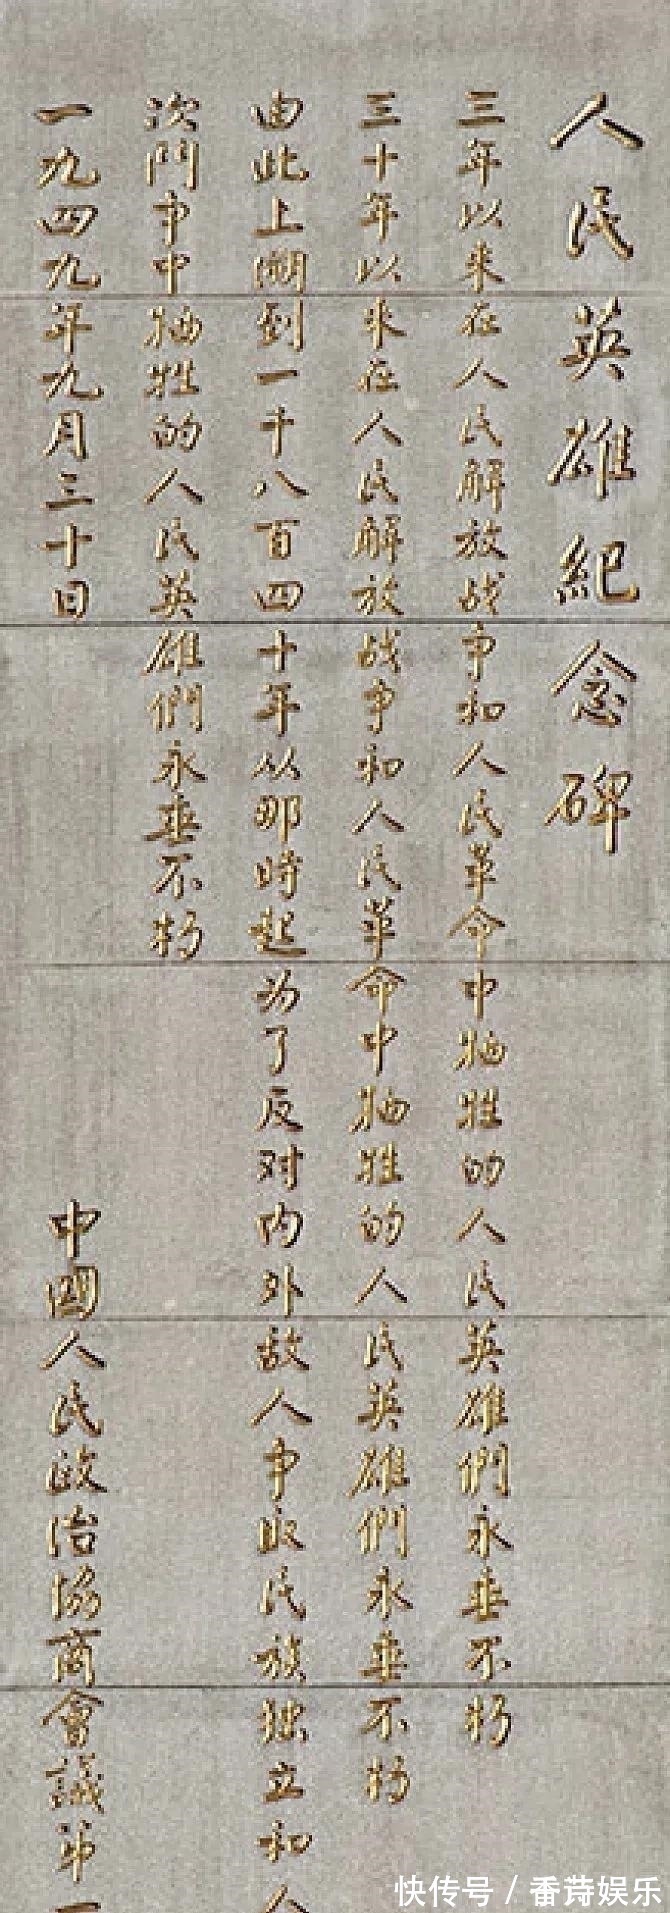 人民英雄紀念碑
三年以来在人民解放战争和人民革命中牺牲的人民英雄們永垂不朽
三十年以来在人民解放战争和人民革命中牺牲的人民英雄們永垂不朽
由此上溯到一千八百四十年从那時起为了反对内外敌人争取民族独立和人
次鬥争中牺牲的人民英雄們永垂不朽
一九四九年九月三十日 中國人民政治協商會議第一
快传号 / 番娱乐